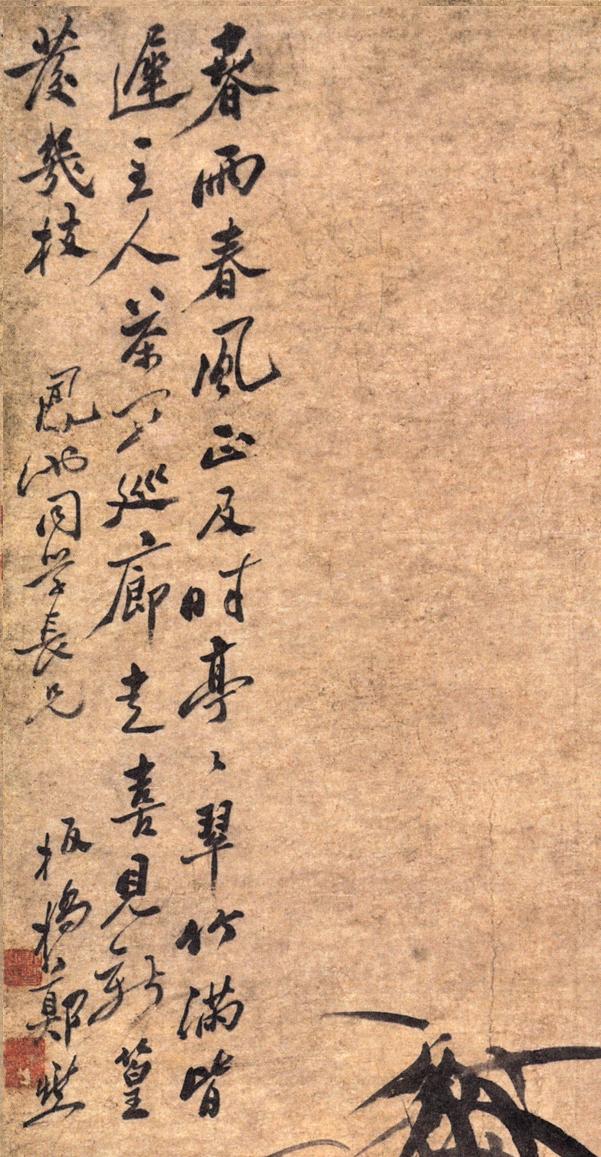 春雨春風正及時亭々翠竹滿皆
遲主人茶巡廊走喜見新篁
發幾枝
鳳池同学長兄
板橋鄭燮